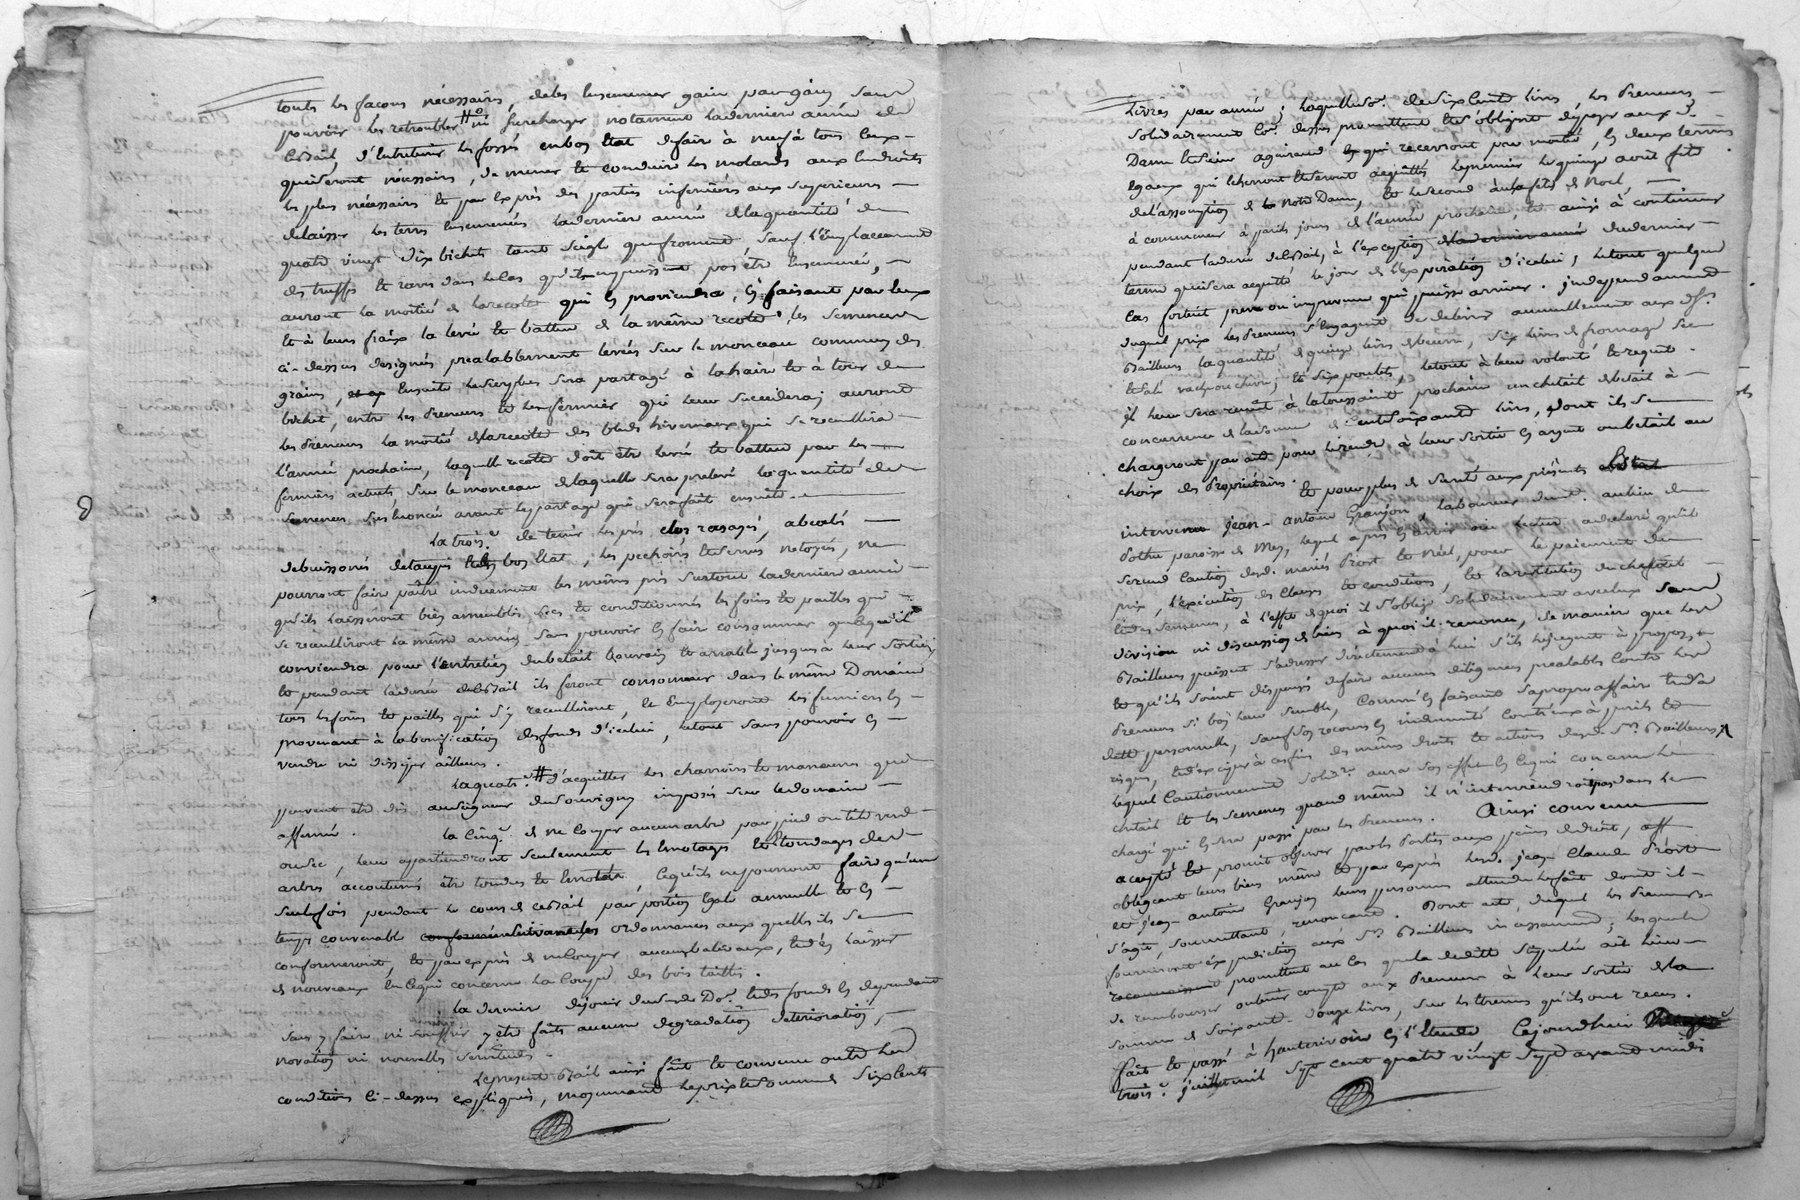 touts les façons nécessaires, de les ensemencer grain par grain, sans
pouvoir les retroubler ni surcharger notament la derniere année du
bail, d'entretenir les fossés en bon état de faire à neuf à tous ceux
qui seront nécessaires, de mener et conduire les molards aux endroits
les plus nécessaires et par exprès des parties inferieures aux superieures
de laisser les terres ensemencées la derniere année de la quantité de
quatre vingt dix bichets tant seigle que froment, sauf l'emplacement
des truffes et raves dans le cas qu'ils n'y puissent pas être ensemencés,
auront la moitié de la recolte qui en proviendra, en faisant par eux
et à leurs fraix la levée et batture de la même recolte, les semences
ci-dessus designés prealablement levées sur le monceau commun des
grains, ensuite le surplus sera partagé à la haire et à tour de
bichet, entre les Preneurs et le fermier qui leur succedera; auront
les Preneurs la moitié de la recolte des bleds hivernaux qui se recullira
l'année prochaine, laquelle recolte doit être levée et battue par les
fermiers actuels, sur le monceau de laquelle sera prelevé la quantité de
semences sus enoncée avant le partage qui sera fait ensuite.
La trois.e de tenir les prés clos rasagés, abealés
debuissonés detaupés en bon état, les pechoirs et serves netoyés, ne
pourront faire paître induement les mêmes prés surtout la derniere année
qu'ils laisseront bien ameublis secs et conditionnés les foins et pailles qui
se recuilliront la même année, sans pouvoir en faire consommer que ce qu'il
conviendra pour l'entretien du betail bouvin et arrable jusques à leur sortie,
et pendant la durée du Bail ils feront consommer dans le même Domaine
tous les foins et pailles qui s'y recuilliront, et employeront les fumiers en
provenant à la bonification des fonds d'icelui, le tout sans pouvoir en
vendre ni dissiper ailleurs.
La quatr.e d'acquitter les charrois et manoeuvres qui
peuvent être dûs au seigneur de Souvigny imposés sur le domaine
affermé.
La cinq.e de ne couper aucun arbre par pied ou tête verd
ou sec, leur appartiendront seulement les emotages et tondages des
arbres accoutumés être tondus et emotés ce qu'ils ne pourront faire qu'une
seule fois pendant le cours de ce Bail par portion egale annuelle et en
temps convenable ordonnances auxquelles ils se
conformeront, et par exprès de ne couper aucuns baliveaux, et d'en laisser
de nouveaux en ce qui concerne la coupe des bois taillis.
La derniere de jouir du susd. Do.e et des fonds en dependant
sans y faire ni souffrir y être faits aucune degradation deterioration,
novation ni nouvelles servitudes.
Le present Bail ainsi fait et convenu outre les
conditions ci-dessus expliqués, moyennant le prix et somme de six cents
livres par année; laquelle somme de six cents livres, les Preneurs
solidairement comme dessus promettent et s'obligent de payer aux d.
Dame et Sieur qui recevront par moitié, en deux termes
egaux qui echerront et seront acquittés le premier le quinze août fête
de l'assomption de Notre Dame, et le second à la fête de Noel,
à commencer à pareils jours de l'année prochaine, et ainsi à continuer
pendant la durée du Bail, à l'exception du dernier
terme qui sera acquitté le jour de l'expiration d'icelui, le tout quelque
cas fortuit prevu ou imprevu qui puisse arriver. Independamment
duquel prix les Preneurs s'engagent de delivrer annuellement aux d.s
Bailleurs la quantité de quinze livres de beurre, six livres de fromage sec
et six poulets, le tout à leur volonté et requête.
Il leur sera remis à la toussaint prochaine un cheptail de betail à
concurrence de la somme de cent soixante livres, dont ils se
chargeront par acte pour le rendre à leur sortie en argent ou betail au
choix des Propriétaires. Et pour plus de sureté aux présents
intervenu Jean-antoine Granjon laboureur
paroisse de lequel après a declaré qu'il
se rend caution desd. mariés Prost et Néel, pour le paiement du
prix, l'exécution des clauses et conditions, et la restitution du cheptail
et des semences, à l'effet de quoi il s'oblige solidairement avec eux sans
division ni discussion de biens à quoi il renonce, de maniere que les
Bailleurs puissent s'adresser directement à lui s'ils le jugent à propos,
et qu'ils soient dispensés de faire aucunes diligences prealables contre les
Preneurs si bon leur semble, comme en faisant sa propre affaire et sa
dette personnelle, sauf son recours en indemnité contr'eux à perils et
risques, et d'exciper à ces fins des mêmes droits et actions desd. Srs. Bailleurs,
lequel cautionnement solid.re aura son effet en ce qui concerne le
cheptail et les semences quand même il n'interviendroit pas dans le
chargé qui en sera passé par les Preneurs. Ainsi convenu
accepté et promis observer par les Parties aux peines de droit,
obligeant leurs biens même et par exprès lesd. Jean Claude Prost
et Jean-antoine Granjon leurs personnes attendu le fait dont il
s'agit, soumettant, renonçant. Dont acte, duquel les Preneurs
fourniront expedition aux Srs. Bailleurs incessamment; lesquels
promettent au cas que la dedite stipulée ait lieu
de rembourser ou tenir compte aux Preneurs à leur sortie de la
somme de soixante-douze livres, sur les étrennes qu'ils ont recus.
Fait et passé à hauterivoire en l'Etude Cejourdhuy
trois.e juillet mil sept cent quatre vingt sept avant midi